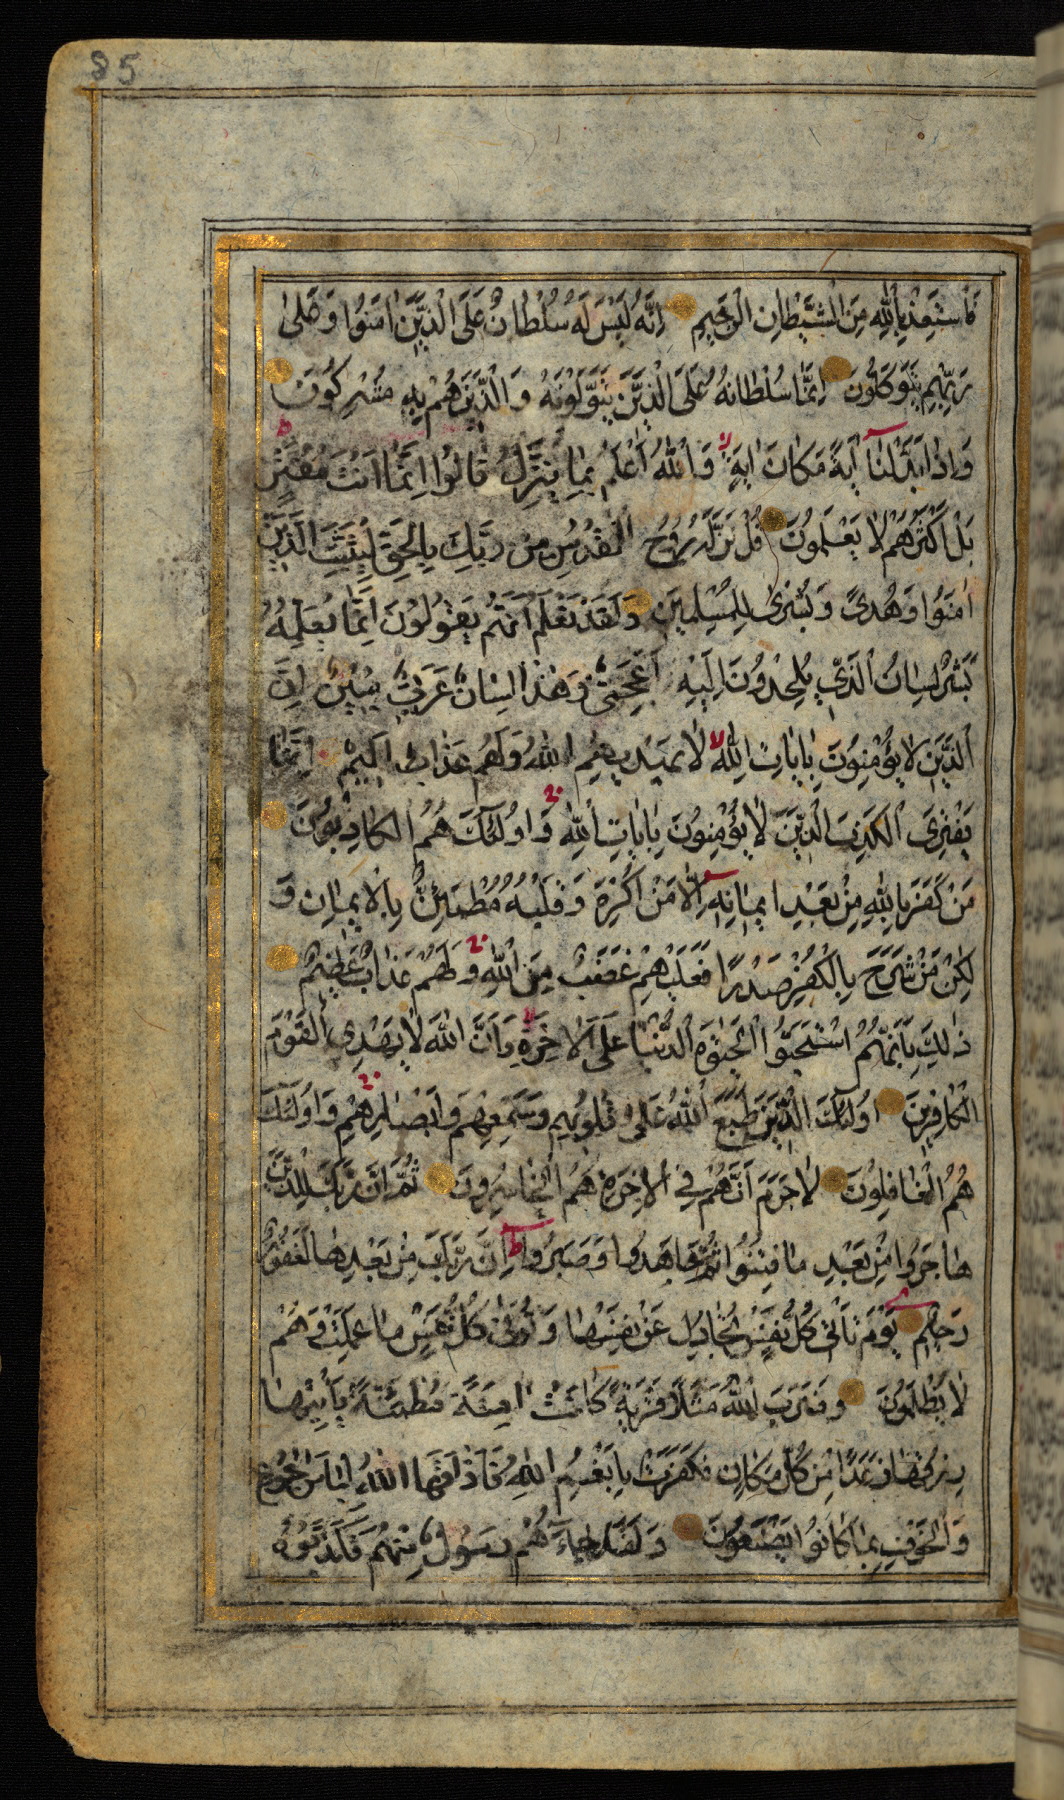 85
فَاسْتَعِذْ بِاللّٰهِ مِنَ الشَّيْطَانِ الرَّجِيمِ اِنَّهُ لَيْسَ لَهُ سُلْطَانٌ عَلَى الَّذِينَ اٰمَنُوا وَعَلىٰ
رَبِّهِمْ يَتَوَكَّلُونَ اِنَّمَا سُلْطَانُهُ عَلَى الَّذِينَ يَتَوَلَّوْنَهُ وَالَّذِينَ هُمْ بِهِ مُشْرِكُونَ
وَاِذَا بَدَّلْنَا آيَةً مَكَانَ اٰيَةٍ وَاللّٰهُ اَعْلَمُ بِمَا يُنَزِّلُ قَالُوا اِنَّمَا اَنْتَ مُفْتَرٍ
بَلْ اَكْثَرُهُمْ لَا يَعْلَمُونَ قُلْ نَزَّلَهُ رُوحُ الْقُدُسِ مِنْ رَبِّكَ بِالْحَقِّ لِيُثَبِّتَ الَّذِينَ
اٰمَنُوا وَهُدًى وَبُشْرىٰ لِلْمُسْلِمِينَ وَلَقَدْ نَعْلَمُ اَنَّهُمْ يَقُولُونَ اِنَّمَا يُعَلِّمُهُ
بَشَرٌ لِسَانُ الَّذِي يُلْحِدُونَ اِلَيْهِ اَعْجَمِيٌّ وَهٰذَا لِسَانٌ عَرَبِيٌّ مُبِينٌ اِنَّ
الَّذِينَ لَا يُؤْمِنُونَ بِاٰيَاتِ اللّٰهِ لَا يَهْدِيهِمُ اللّٰهُ وَلَهُمْ عَذَابٌ اَلِيمٌ اِنَّمَا
يَفْتَرِي الْكَذِبَ الَّذِينَ لَا يُؤْمِنُونَ بِاٰيَاتِ اللّٰهِ وَاُولٰئِكَ هُمُ الْكَاذِبُونَ
مَنْ كَفَرَ بِاللّٰهِ مِنْ بَعْدِ اِيمَانِهِ اِلَّا مَنْ اُكْرِهَ وَقَلْبُهُ مُطْمَئِنٌّ بِالْاِيمَانِ وَ
لٰكِنْ مَنْ شَرَحَ بِالْكُفْرِ صَدْرًا فَعَلَيْهِمْ غَضَبٌ مِنَ اللّٰهِ وَلَهُمْ عَذَابٌ عَظِيمٌ
ذٰلِكَ بِاَنَّهُمُ اسْتَحَبُّوا الْحَيٰوةَ الدُّنْيَا عَلَى الْاٰخِرَةِ وَاَنَّ اللّٰهَ لَا يَهْدِي الْقَوْمَ
الْكَافِرِينَ اُولٰئِكَ الَّذِينَ طَبَعَ اللّٰهُ عَلىٰ قُلُوبِهِمْ وَسَمْعِهِمْ وَاَبْصَارِهِمْ وَاُولٰئِكَ
هُمُ الْغَافِلُونَ لَا جَرَمَ اَنَّهُمْ فِي الْاٰخِرَةِ هُمُ الْخَاسِرُونَ ثُمَّ اِنَّ رَبَّكَ لِلَّذِينَ
هَاجَرُوا مِنْ بَعْدِ مَا فُتِنُوا ثُمَّ جَاهَدُوا وَصَبَرُوا اِنَّ رَبَّكَ مِنْ بَعْدِهَا لَغَفُورٌ
رَحِيمٌ يَوْمَ تَأْتِي كُلُّ نَفْسٍ تُجَادِلُ عَنْ نَفْسِهَا وَتُوَفّٰى كُلُّ نَفْسٍ مَا عَمِلَتْ وَهُمْ
لَا يُظْلَمُونَ وَضَرَبَ اللّٰهُ مَثَلًا قَرْيَةً كَانَتْ اٰمِنَةً مُطْمَئِنَّةً يَأْتِيهَا
رِزْقُهَا رَغَدًا مِنْ كُلِّ مَكَانٍ فَكَفَرَتْ بِاَنْعُمِ اللّٰهِ فَاَذَاقَهَا اللّٰهُ لِبَاسَ الْجُوعِ
وَالْخَوْفِ بِمَا كَانُوا يَصْنَعُونَ وَلَقَدْ جَاءَهُمْ رَسُولٌ مِنْهُمْ فَكَذَّبُوهُ